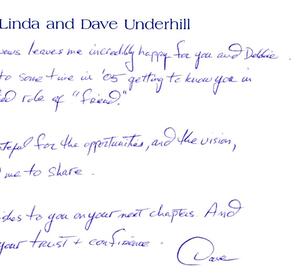 Linda and Dave Underhill
news leaves me incredibly happy for you and Debbie.
to some time in '05 getting to know you in
role of "friend."
for the opportunities, and the vision,
me to share.
to you on your next chapter. And
your trust + confidence.
Dave